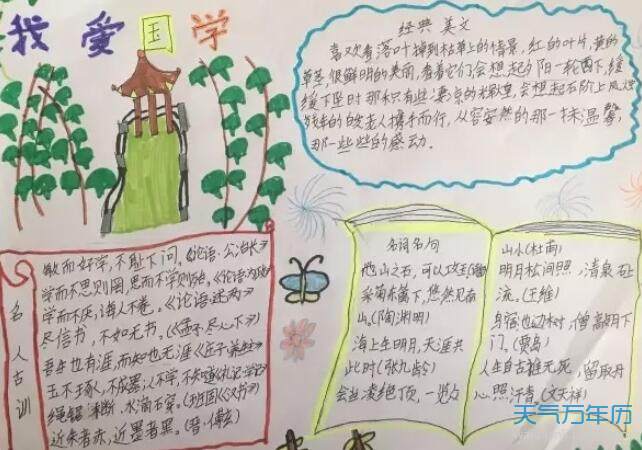 我爱国学
经典美文
喜欢看落叶掉到枯草上的情景,红的叶片,黄的
草茎,很鲜明的美丽,看着它们会想起夕阳一轮西下,缓
缓下坠时那种有些凄凉的
会想起石阶上风烛
残年的白发老人携手而行,从容安然的那一抹温馨,
那一些些的感动。
名人古训
敏而好学,不耻下问。《论语·公冶长》
学而不思则罔,思而不学则殆。《论语·为政》
学而不厌,诲人不倦。《论语·述而》
尽信书,不如无书。(《孟子·尽心下》)
吾生也有涯,而知也无涯《庄子·养生》
玉不琢,不成器;人不学,不知道(《礼记·学记》)
绳锯木断,水滴石穿。(班固《汉书》)
近朱者赤,近墨者黑。(晋·傅玄)
名词名句
他山之石,可以攻玉
采菊东篱下,悠然见南
山。(陶渊明)
海上生明月,天涯共
此时(张九龄)
会当凌绝顶,一览
山小(杜甫)
明月松间照,清泉石上
流。(王维)
僧敲月下
门。(贾岛)
人生自古谁无死,留取丹
心照汗青。(文天祥)
天气万年历